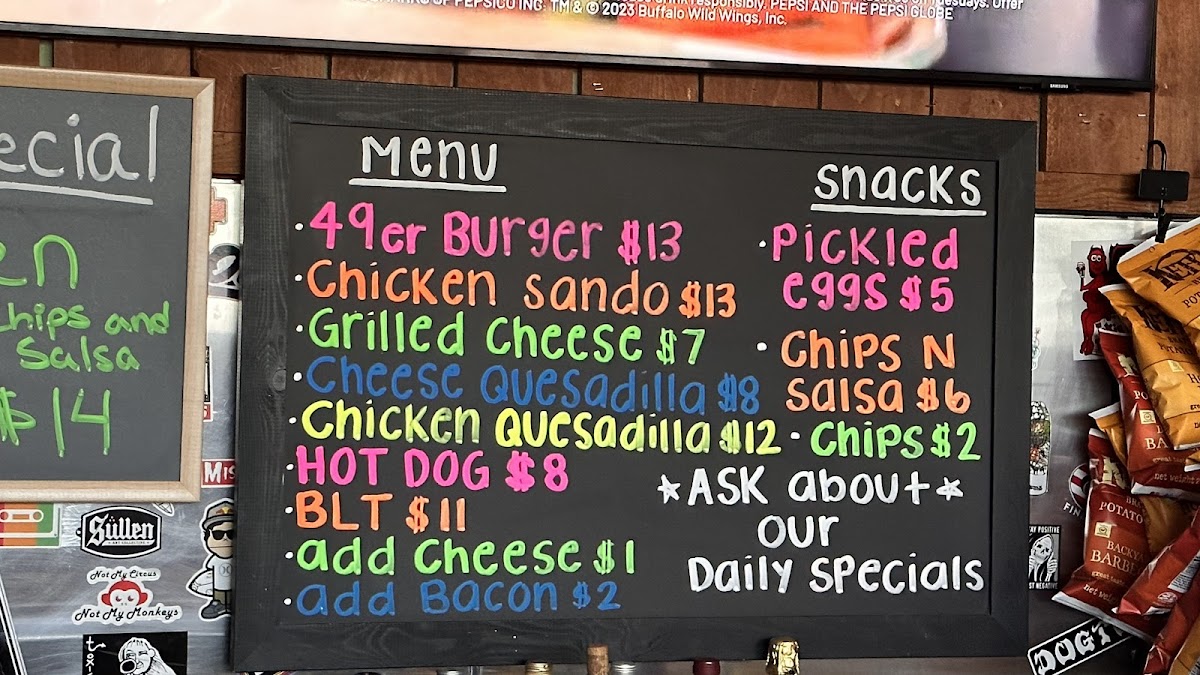 TM & © 2023 Buffalo Wild Wings, Inc.
PEPSI AND THE PEPSI GLOBE
SAMSUNG
ecial
en
Chips and
Salsa
$14
Menu
·49er Burger $13
·Chicken sando $13
·Grilled Cheese $7
·Cheese Quesadilla $8
·Chicken Quesadilla $12
·HOT DOG $8
·BLT $11
·add Cheese $1
·add Bacon $2
Snacks
·Pickled
eggs $5
·Chips N
Salsa $6
·Chips $2
*ASK about*
our
Daily Specials
Süllen
Not My Circus
Not My Monkeys